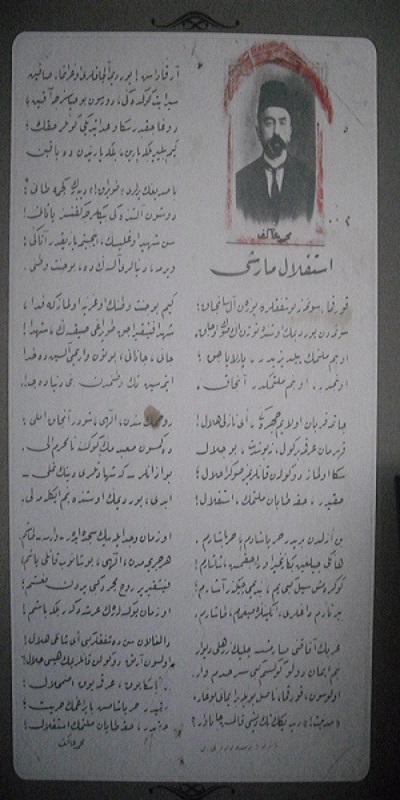 محمد عاكف
استقلال مارشى
قورقما، سونمز بو شفقلرده يوزن آل سانجاق؛
سونمه‌دن يورديمك اوستنده توتن اك صوك اوجاق.
او بنم ملتمك ييلديزيدر، پارلاياجق؛
او بنمدر، او بنم ملتمكدر آنجاق.
چاتمه قربان اولايم چهره‌ڭى، اى نازلى هلال!
قهرمان عرقمه بر كول.. نه بو شدت، بو جلال؟
سكا اولماز دوكولن قانلريمز صوكرا حلال؛
حقيدر، حقه طاپان ملتمك، استقلال!
بن ازلدن بريدر حر ياشادم، حر ياشارم.
هانكى چيلغين بكا زنجير اوره‌جقمش، شاشارم!
كوكره‌مش سيل كبى‌يم، بنديمى چيكنر آشارم؛
ييرتارم داغلرى، انكينلره صيغمام، طاشارم.
غربك آفاقنى صارمشسه چليك زرهلى ديوار؛
بنم ايمان دولو كوكسم كبى سرحدم وار.
اولوسون، قورقما! ناصل بويله بر ايمانى بوغار،
«مدنيت!» ديديكك تك ديشى قالمش جاناوار؟
آرقاداش! يورديمه آلچاقلرى اوغراتما، صاقين؛
سپر ايت كوكده‌كى، دورسون بو حياسزجه آقين؛
دوغاجقدر سكا وعد ايتديكى كونلر حقك؛
كيم بيلير، بلكه يارين، بلكه ياريندن ده ياقين.
باصديغك يرلرى «طوپراق!» ديه‌رك كچمه، طانى!
دوشون آلتنده‌كى بيكلرجه كفنسز ياتانى!
سن شهيد اوغليسك، اينجيتمه، يازيقدر، آتاكى؛
ويرمه، دنيالرى آلسه‌ك ده، بو جنت وطنى.
كيم بو جنت وطنك اوغرينه اولماز كه فدا؛
شهدا فيشقيراجق طوپراغى صيقسه‌ك، شهدا!
جانى، جانانى، بوتون واريمى آلسين ده خدا
ايتمه‌سين تك وطنمدن بنى دنياده جدا.
روحمك سندن، الهى، شودر آنجاق املى؛
دكمه‌سين معبدمك كوكسنه نامحرم الى؛
بو اذانلر - كه شهادتلرى دينك تملى -
ابدى، يورديمك اوستنده بنم ايكله‌ملى.
او زمان وجد ايله بيك سجده ايدر - وارسه - طاشم؛
هر جريحه‌مدن، الهى، بوشانوب قانلى ياشم،
فيشقيرير روح مجرد كبى يردن نعشم؛
او زمان يوكسله‌رك عرشه دكر بلكه باشم!
دالغالان سن ده شفقلر كبى اى شانلى هلال!
اولسون آرتق دوكولن قانلريمك هپسى حلال؛
ابدياً سكا يوق، عرقمه يوق اضمحلال؛
حقيدر، حر ياشامش، بايراغمك حريت؛
حقيدر، حقه طاپان ملتمك استقلال!
محمد عاكف